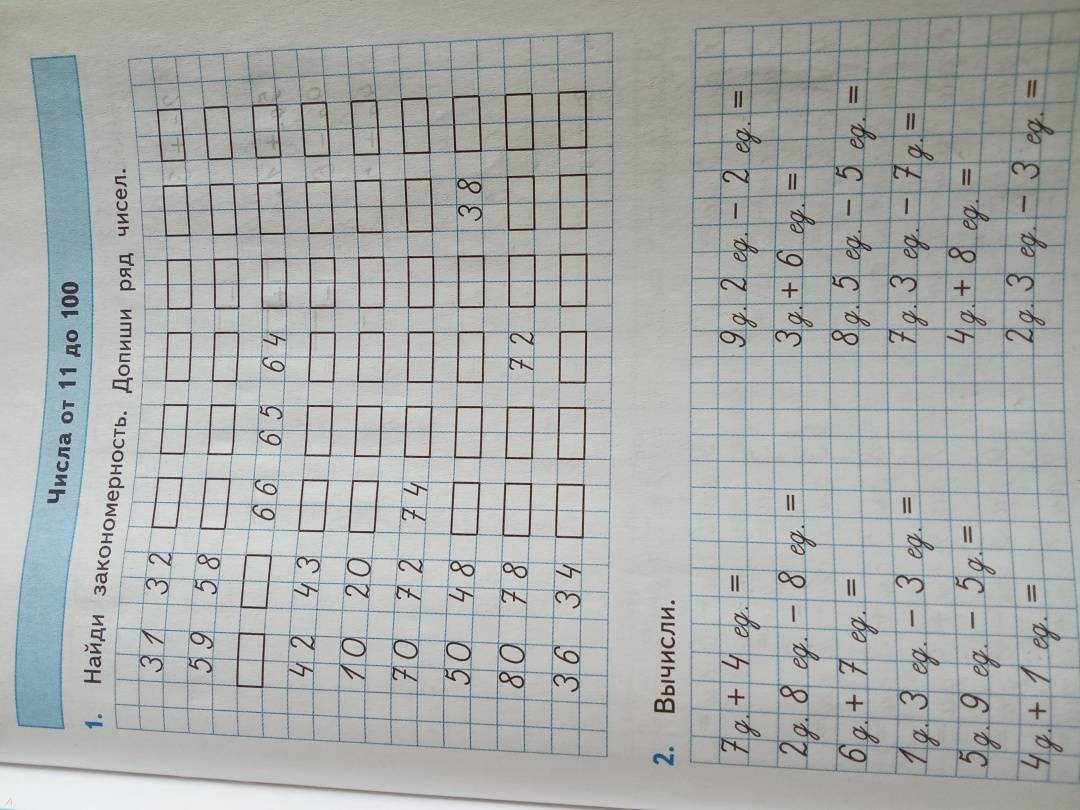 Числа от 11 до 100
1. Найди закономерность. Допиши ряд чисел.
31 32
59 58
66 65 64
42 43
10 20
70 72 74
50 48 38
80 78 72
36 34
2. Вычисли.
7 д. + 4 ед. = 9 д. 2 ед. − 2 ед. =
2 д. 8 ед. − 8 ед. = 3 д. + 6 ед. =
6 д. + 7 ед. = 8 д. 5 ед. − 5 ед. =
1 д. 3 ед. − 3 ед. = 7 д. 3 ед. − 7 д. =
5 д. 9 ед. − 5 д. = 4 д. + 8 ед. =
4 д. + 1 ед. = 2 д. 3 ед. − 3 ед. =